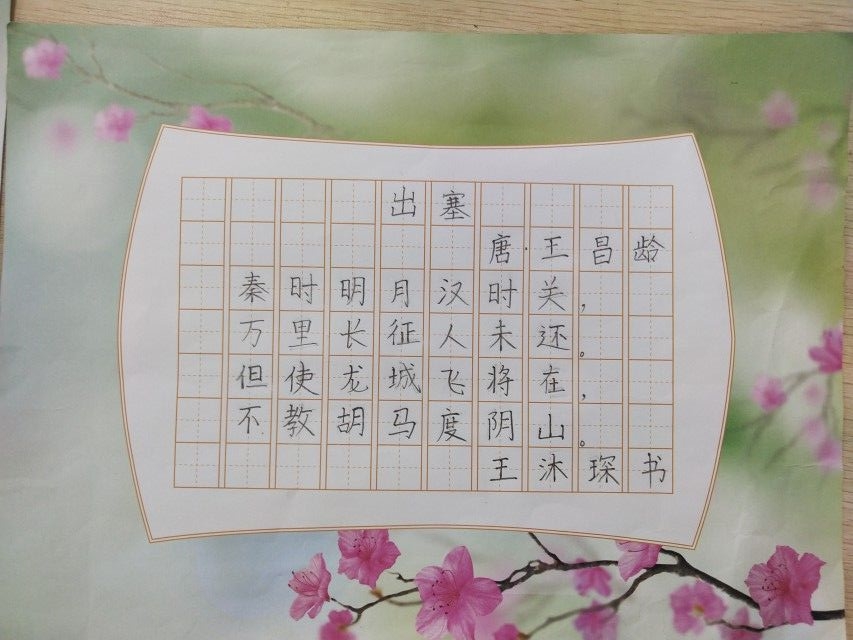 出塞
唐·王昌龄
秦时明月汉时关，
万里长征人未还。
但使龙城飞将在，
不教胡马度阴山。
王沐琛书